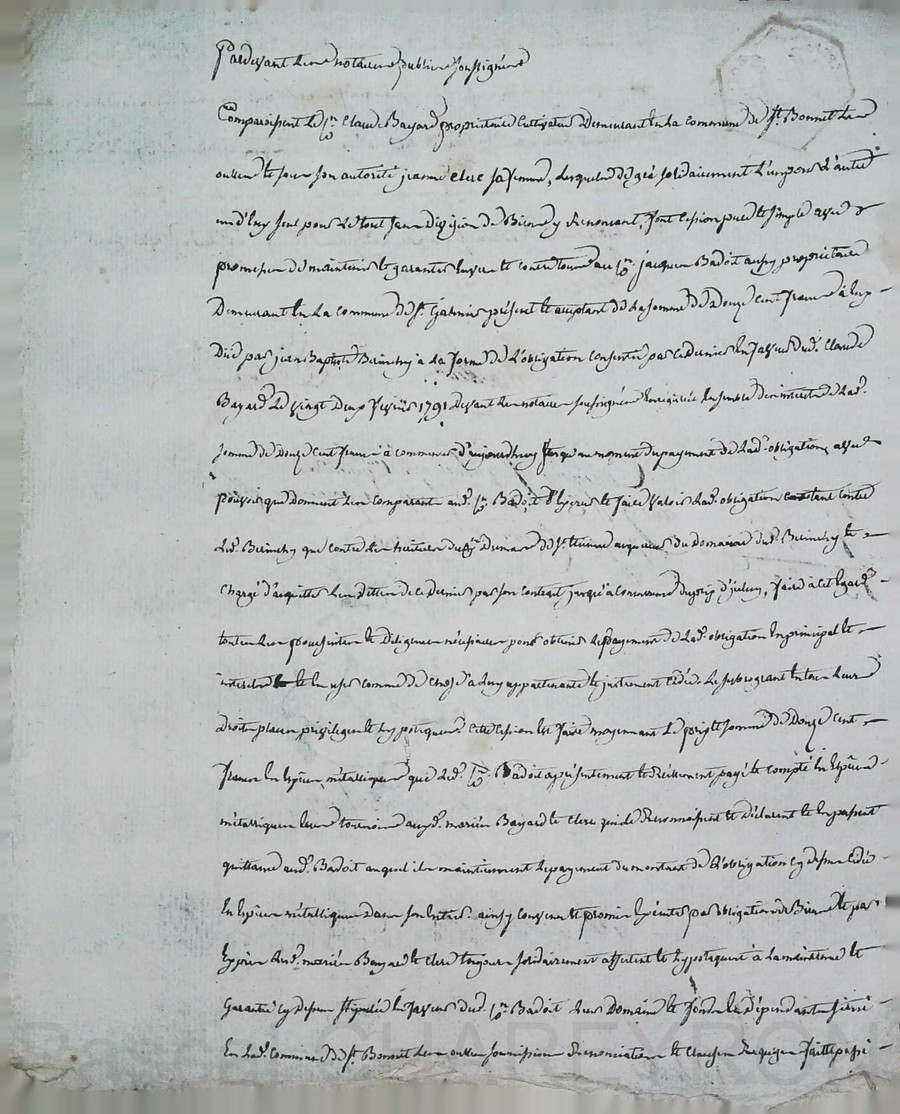 Pardevant les notaires publics soussignés
Comparoissent le Sr. Claude Bayard propriétaire cultivateur demeurant en la commune de St. Bonnet les
oulles et sous son autorité jeanne Clerc sa femme, lesquels de gré solidairement l'un pour l'autre
un d'eux seul pour le tout sans division de Biens y Renoncant, font cession pure et simple avec
promesse de maintenir et garantir envers et contre tous au Sr. jacques Badoit aussy propriétaire
Demeurant en la commune de St. Galmier présent et acceptant de la somme de Douze cent francs à eux
Düe par jean Baptiste à la forme de l'obligation consentie par ce dernier en faveur dud. Claude
Bayard le vingt deux février 1791 devant les notaires soussignés Enregistrée Ensemble des intérêts de lad.
somme de Douze cent francs à commencer d'aujourdhuy jusqu'au moment du payement de lad. obligation, avec
pouvoir que donnent les comparants aud. Sr. Badoit d'Exercer et faire valoir lad. obligation tant contre
led. que contre les héritiers du Sr. de St. Etienne acquéreur du Domaine dud. et
chargé d'acquitter les dettes de ce dernier par son contrat jusqu'à concurrence du prix d'iceluy, faire à cet Egard
toutes les poursuites et diligences nécessaires pour obtenir le payement de lad. obligation En principal et
intérêts et En user comme de chose à luy appartenante et justement cédée. Le subrogeant En tous leurs
droits places privilèges et hypothèques cette cession est faite moyennant le prix et somme de Douze cent
francs En Espèces métalliques que led. Sr. Badoit a présentement et Réellement payé et compté En Espèces
métalliques aux d. mariés Bayard et Clerc qui le Reconnoissent et déclarent et En passent
quittance aud. Badoit auquel ils maintiennent le payement du montant de l'obligation cy dessus cédée
En Espèces métalliques dans son Entier. ainsy convenu et promis Exécuter par obligation de Biens et par
Exprès lesd. mariés Bayard et Clerc toujours solidairement affectent et hypothèquent à la maintenue et
Garantie cy dessus stipulée En faveur dud. Sr. Badoit leurs Domaine et fonds En dépendants situés
En lad. Commune de St. Bonnet les oulles soumissions Renonciations et clauses Requises fait et passé